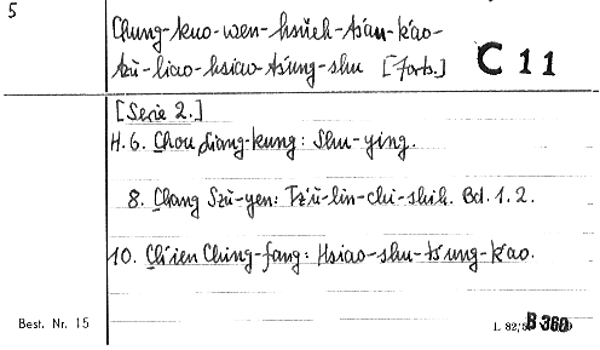 5
Chung-kuo-wen-hsüeh-ts'an-k'ao-
tzŭ-liao-hsiao-ts'ung-shu [Forts.] C 11
[Serie 2.]
H. 6. Chou Liang-kung: Shu-ying.
8. Chang Szŭ-yen: Tz'ŭ-lin-chi-shih. Bd. 1. 2.
10. Ch'ien Ching-fang: Hsiao-shu-ts'ung-k'ao.
Best. Nr. 15
B 360